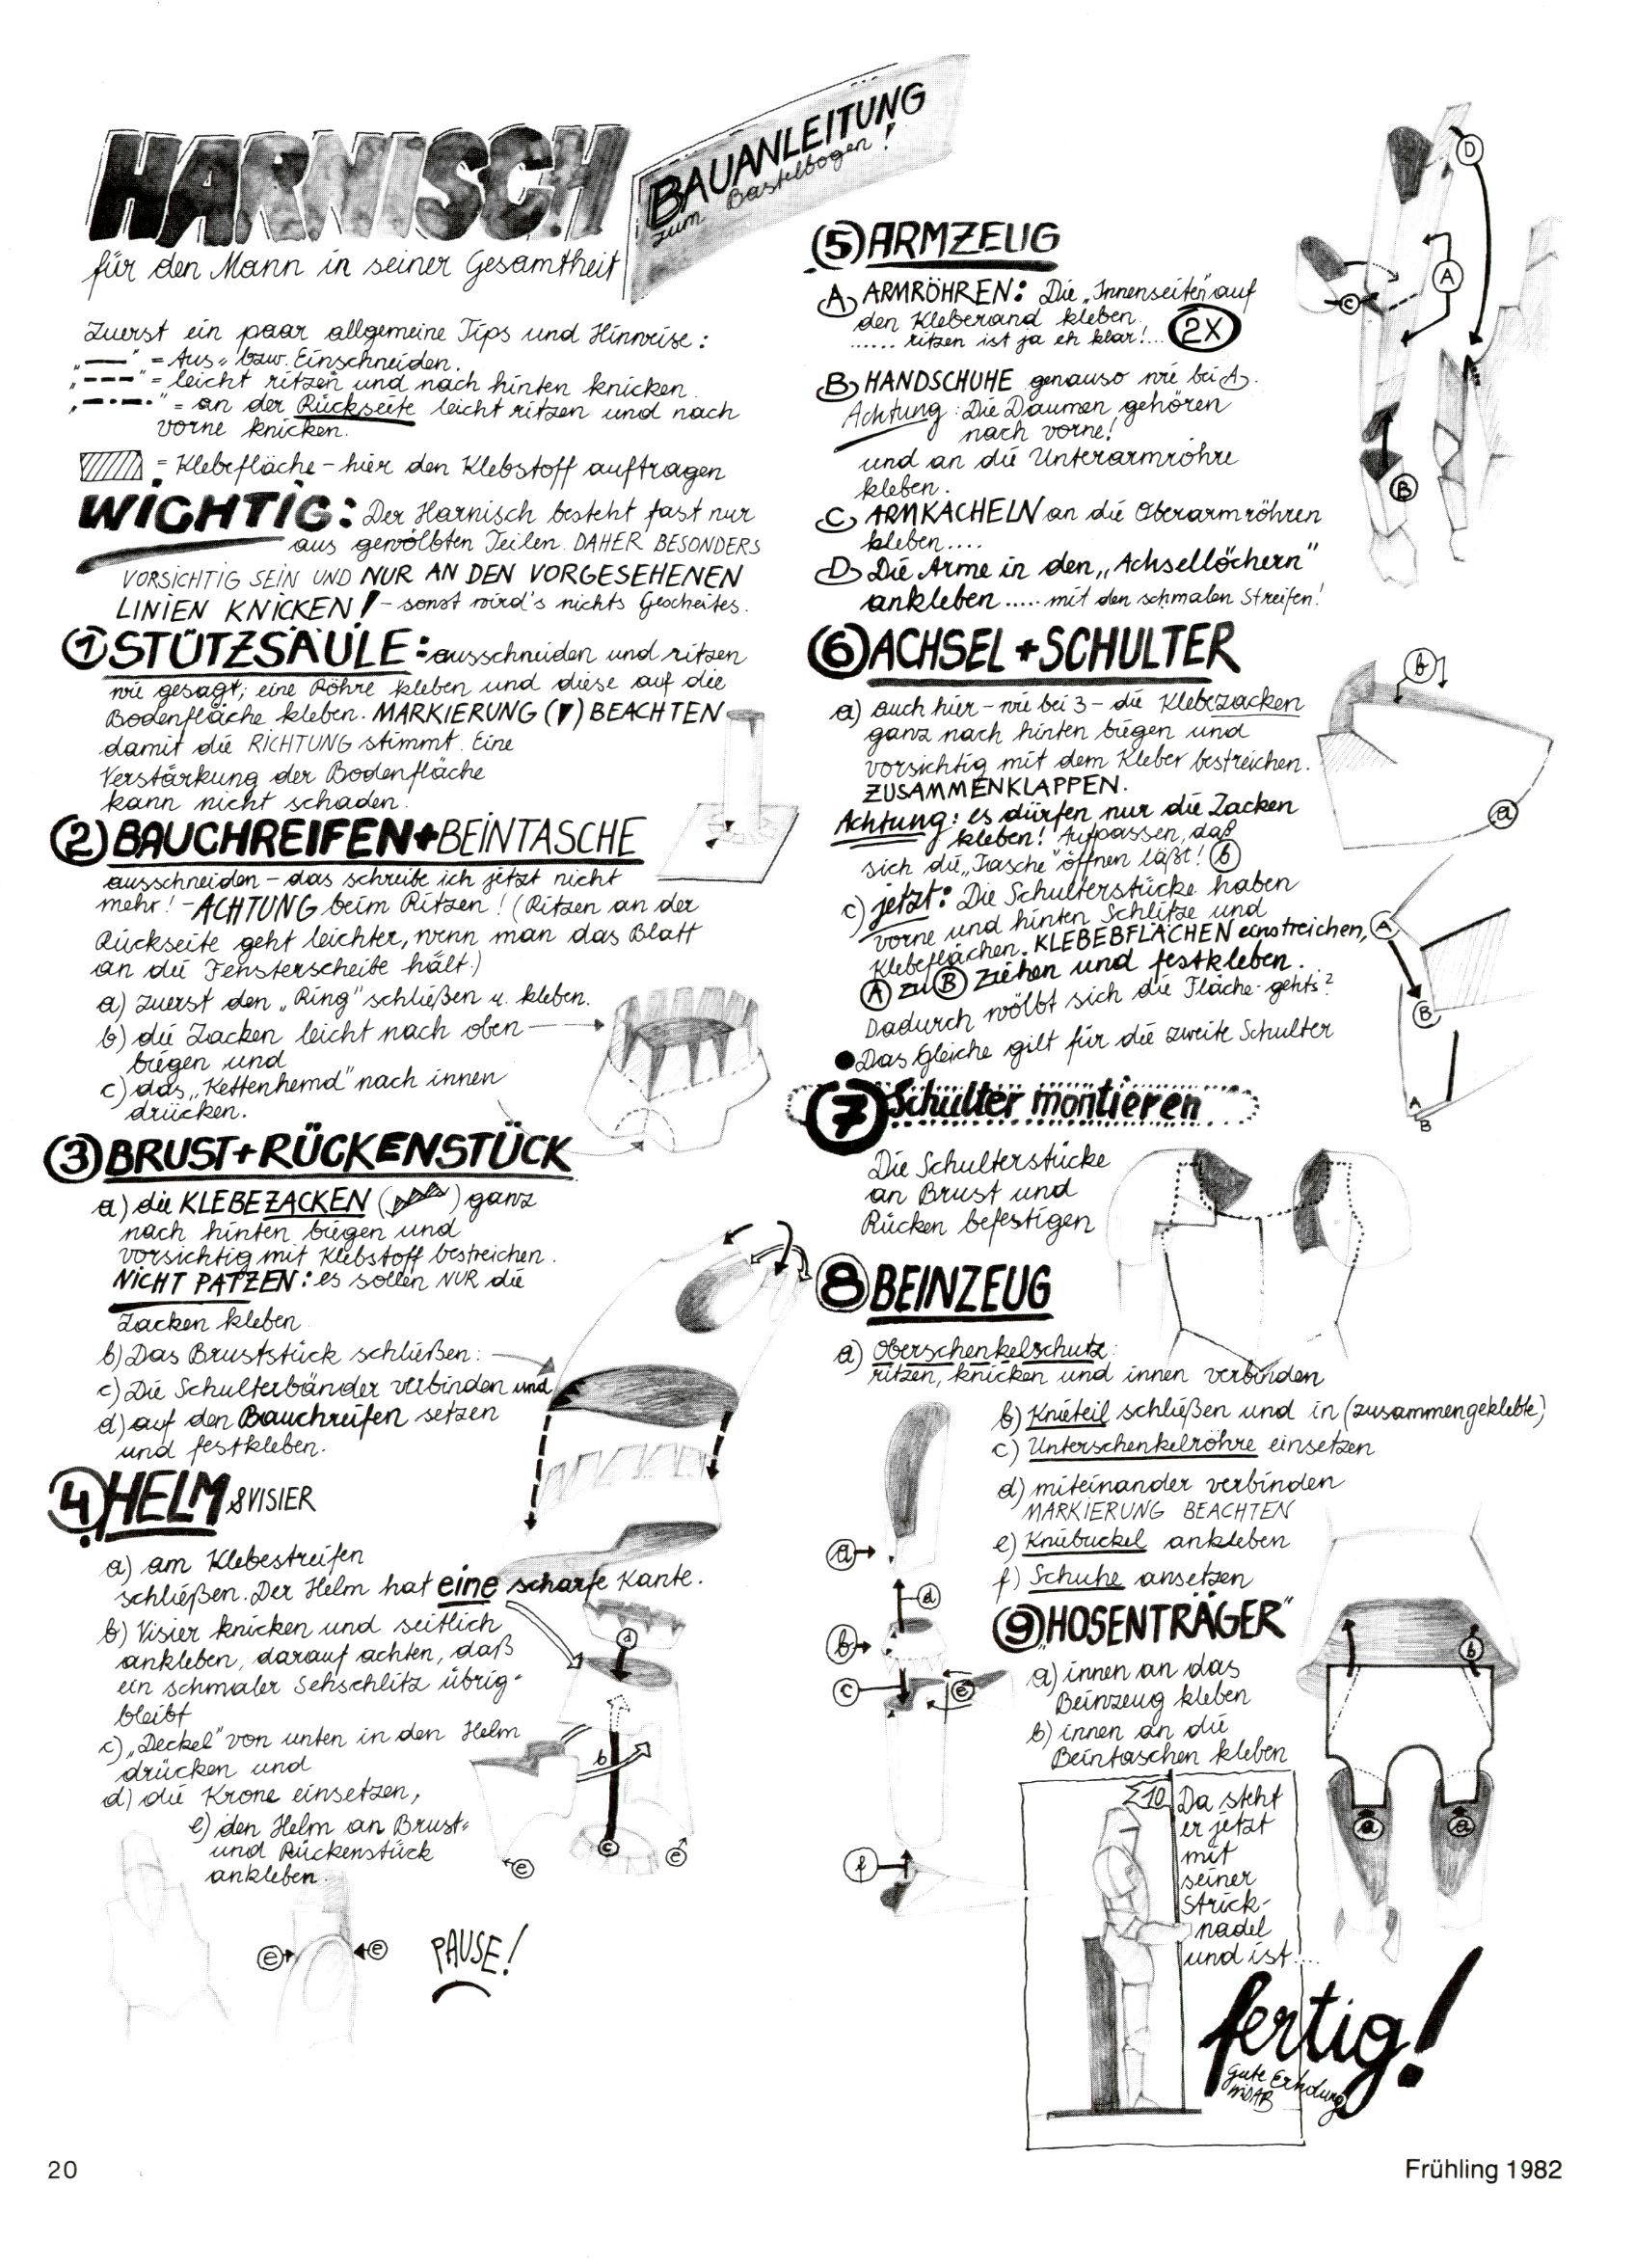 HARNISCH
für den Mann in seiner Gesamtheit
BAUANLEITUNG
zum Bastelbogen!
Zuerst ein paar allgemeine Tips und Hinweise:
„——" = Aus- bzw. Einschneiden.
„---" = leicht ritzen und nach hinten knicken
„-·-·" = an der Rückseite leicht ritzen und nach
vorne knicken.
= Klebefläche - hier den Klebstoff auftragen
WICHTIG: Der Harnisch besteht fast nur
aus gewölbten Teilen. DAHER BESONDERS
VORSICHTIG SEIN UND NUR AN DEN VORGESEHENEN
LINIEN KNICKEN! - sonst wird's nichts Gescheites.
1 STÜTZSÄULE: ausschneiden und ritzen
wie gesagt; eine Röhre kleben und diese auf die
Bodenfläche kleben. MARKIERUNG (▼) BEACHTEN
damit die RICHTUNG stimmt. Eine
Verstärkung der Bodenfläche
kann nicht schaden.
2 BAUCHREIFEN+BEINTASCHE
ausschneiden - das schreibe ich jetzt nicht
mehr! - ACHTUNG beim Ritzen! (Ritzen an der
Rückseite geht leichter, wenn man das Blatt
an die Fensterscheibe hält.)
a) zuerst den „Ring" schließen u. kleben.
b) die Zacken leicht nach oben
biegen und
c) das „Kettenhemd" nach innen
drücken.
3 BRUST+RÜCKENSTÜCK
a) die KLEBEZACKEN ( ) ganz
nach hinten biegen und
vorsichtig mit Klebstoff bestreichen.
NICHT PATZEN: es sollen NUR die
Zacken kleben
b) Das Bruststück schließen:
c) Die Schulterbänder verbinden und
d) auf den Bauchreifen setzen
und festkleben.
4 HELM & VISIER
a) am Klebestreifen
schließen. Der Helm hat eine scharfe Kante.
b) Visier knicken und seitlich
ankleben, darauf achten, daß
ein schmaler Sehschlitz übrig-
bleibt
c) „Deckel" von unten in den Helm
drücken und
d) die Krone einsetzen,
e) den Helm an Brust-
und Rückenstück
ankleben.
d
b
c
e
e
e
e
PAUSE!
5 ARMZEUG
A ARMRÖHREN: Die „Innenseiten" auf
den Kleberand kleben.
...... ritzen ist ja eh klar!... 2X
B HANDSCHUHE genauso wie bei A.
Achtung: Die Daumen gehören
nach vorne!
und an die Unterarmröhre
kleben.
C ARMKACHELN an die Oberarmröhren
kleben....
D Die Arme in den „Achsellöchern"
ankleben ..... mit den schmalen Streifen!
D
A
C
B
6 ACHSEL+SCHULTER
a) auch hier - wie bei 3 - die Klebezacken
ganz nach hinten biegen und
vorsichtig mit dem Kleber bestreichen.
ZUSAMMENKLAPPEN.
Achtung: es dürfen nur die Zacken
kleben! Aufpassen, daß
sich die „Tasche" öffnen läßt! b
c) jetzt: Die Schulterstücke haben
vorne und hinten Schlitze und
Klebeflächen. KLEBEBFLÄCHEN einstreichen,
A zu B ziehen und festkleben.
Dadurch wölbt sich die Fläche - gehts?
• Das Gleiche gilt für die zweite Schulter
b
a
A
B
A
B
7 Schulter montieren
Die Schulterstücke
an Brust und
Rücken befestigen
8 BEINZEUG
a) Oberschenkelschutz:
ritzen, knicken und innen verbinden
b) Knieteil schließen und in (zusammengeklebte)
c) Unterschenkelröhre einsetzen
d) miteinander verbinden
MARKIERUNG BEACHTEN
e) Kniebuckel ankleben
f) Schuhe ansetzen
a
d
b
c
e
f
9 „HOSENTRÄGER"
a) innen an das
Beinzeug kleben
b) innen an die
Beintaschen kleben
b
a
a
10 Da steht
er jetzt
mit
seiner
Strick-
nadel
und ist....
fertig!
Gute Erholung
20
Frühling 1982